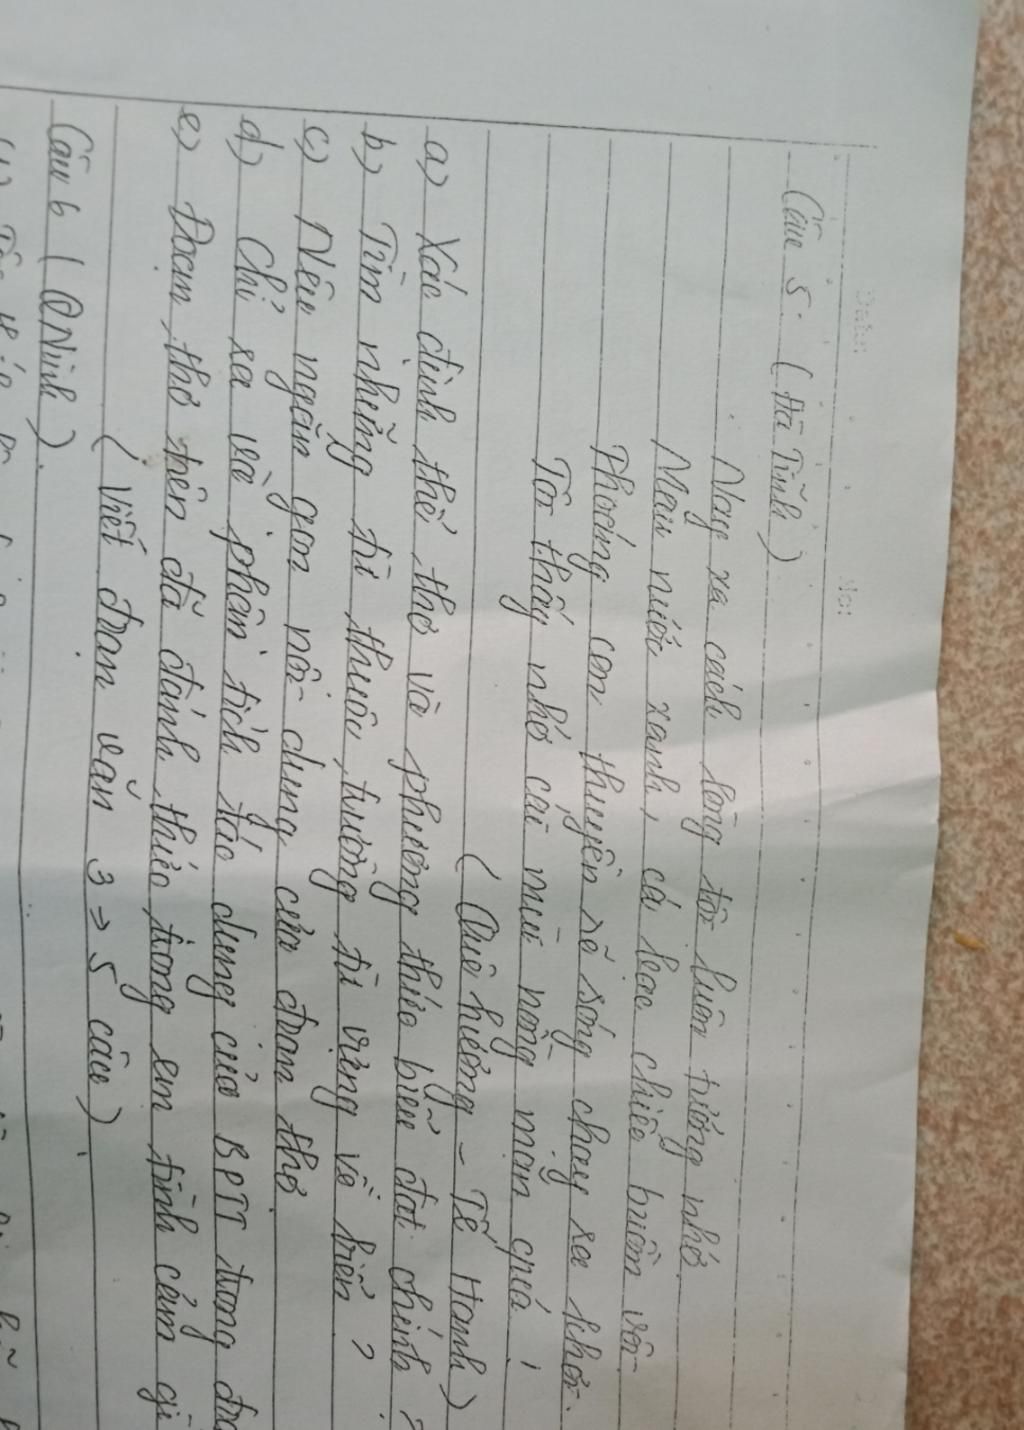 Date: No:
Câu 5 (Hà Tĩnh)
Nay xa cách lòng tôi luôn tưởng nhớ
Màu nước xanh, cá bạc chiếc buồm vôi
Thoáng con thuyền rẽ sóng chạy ra khơi
Tôi thấy nhớ cái mùi nồng mặn quá!
(Quê hương - Tế Hanh)
a) Xác định thể thơ và phương thức biểu đạt chính?
b) Tìm những từ thuộc trường từ vựng về biển?
c) Nêu ngắn gọn nội dung của đoạn thơ
d) Chỉ ra và phân tích tác dụng của BPTT trong
e) Đoạn thơ trên đã đánh thức trong em tình cảm gì
(Viết đoạn văn 3 => 5 câu)
Câu 6 (QNinh).